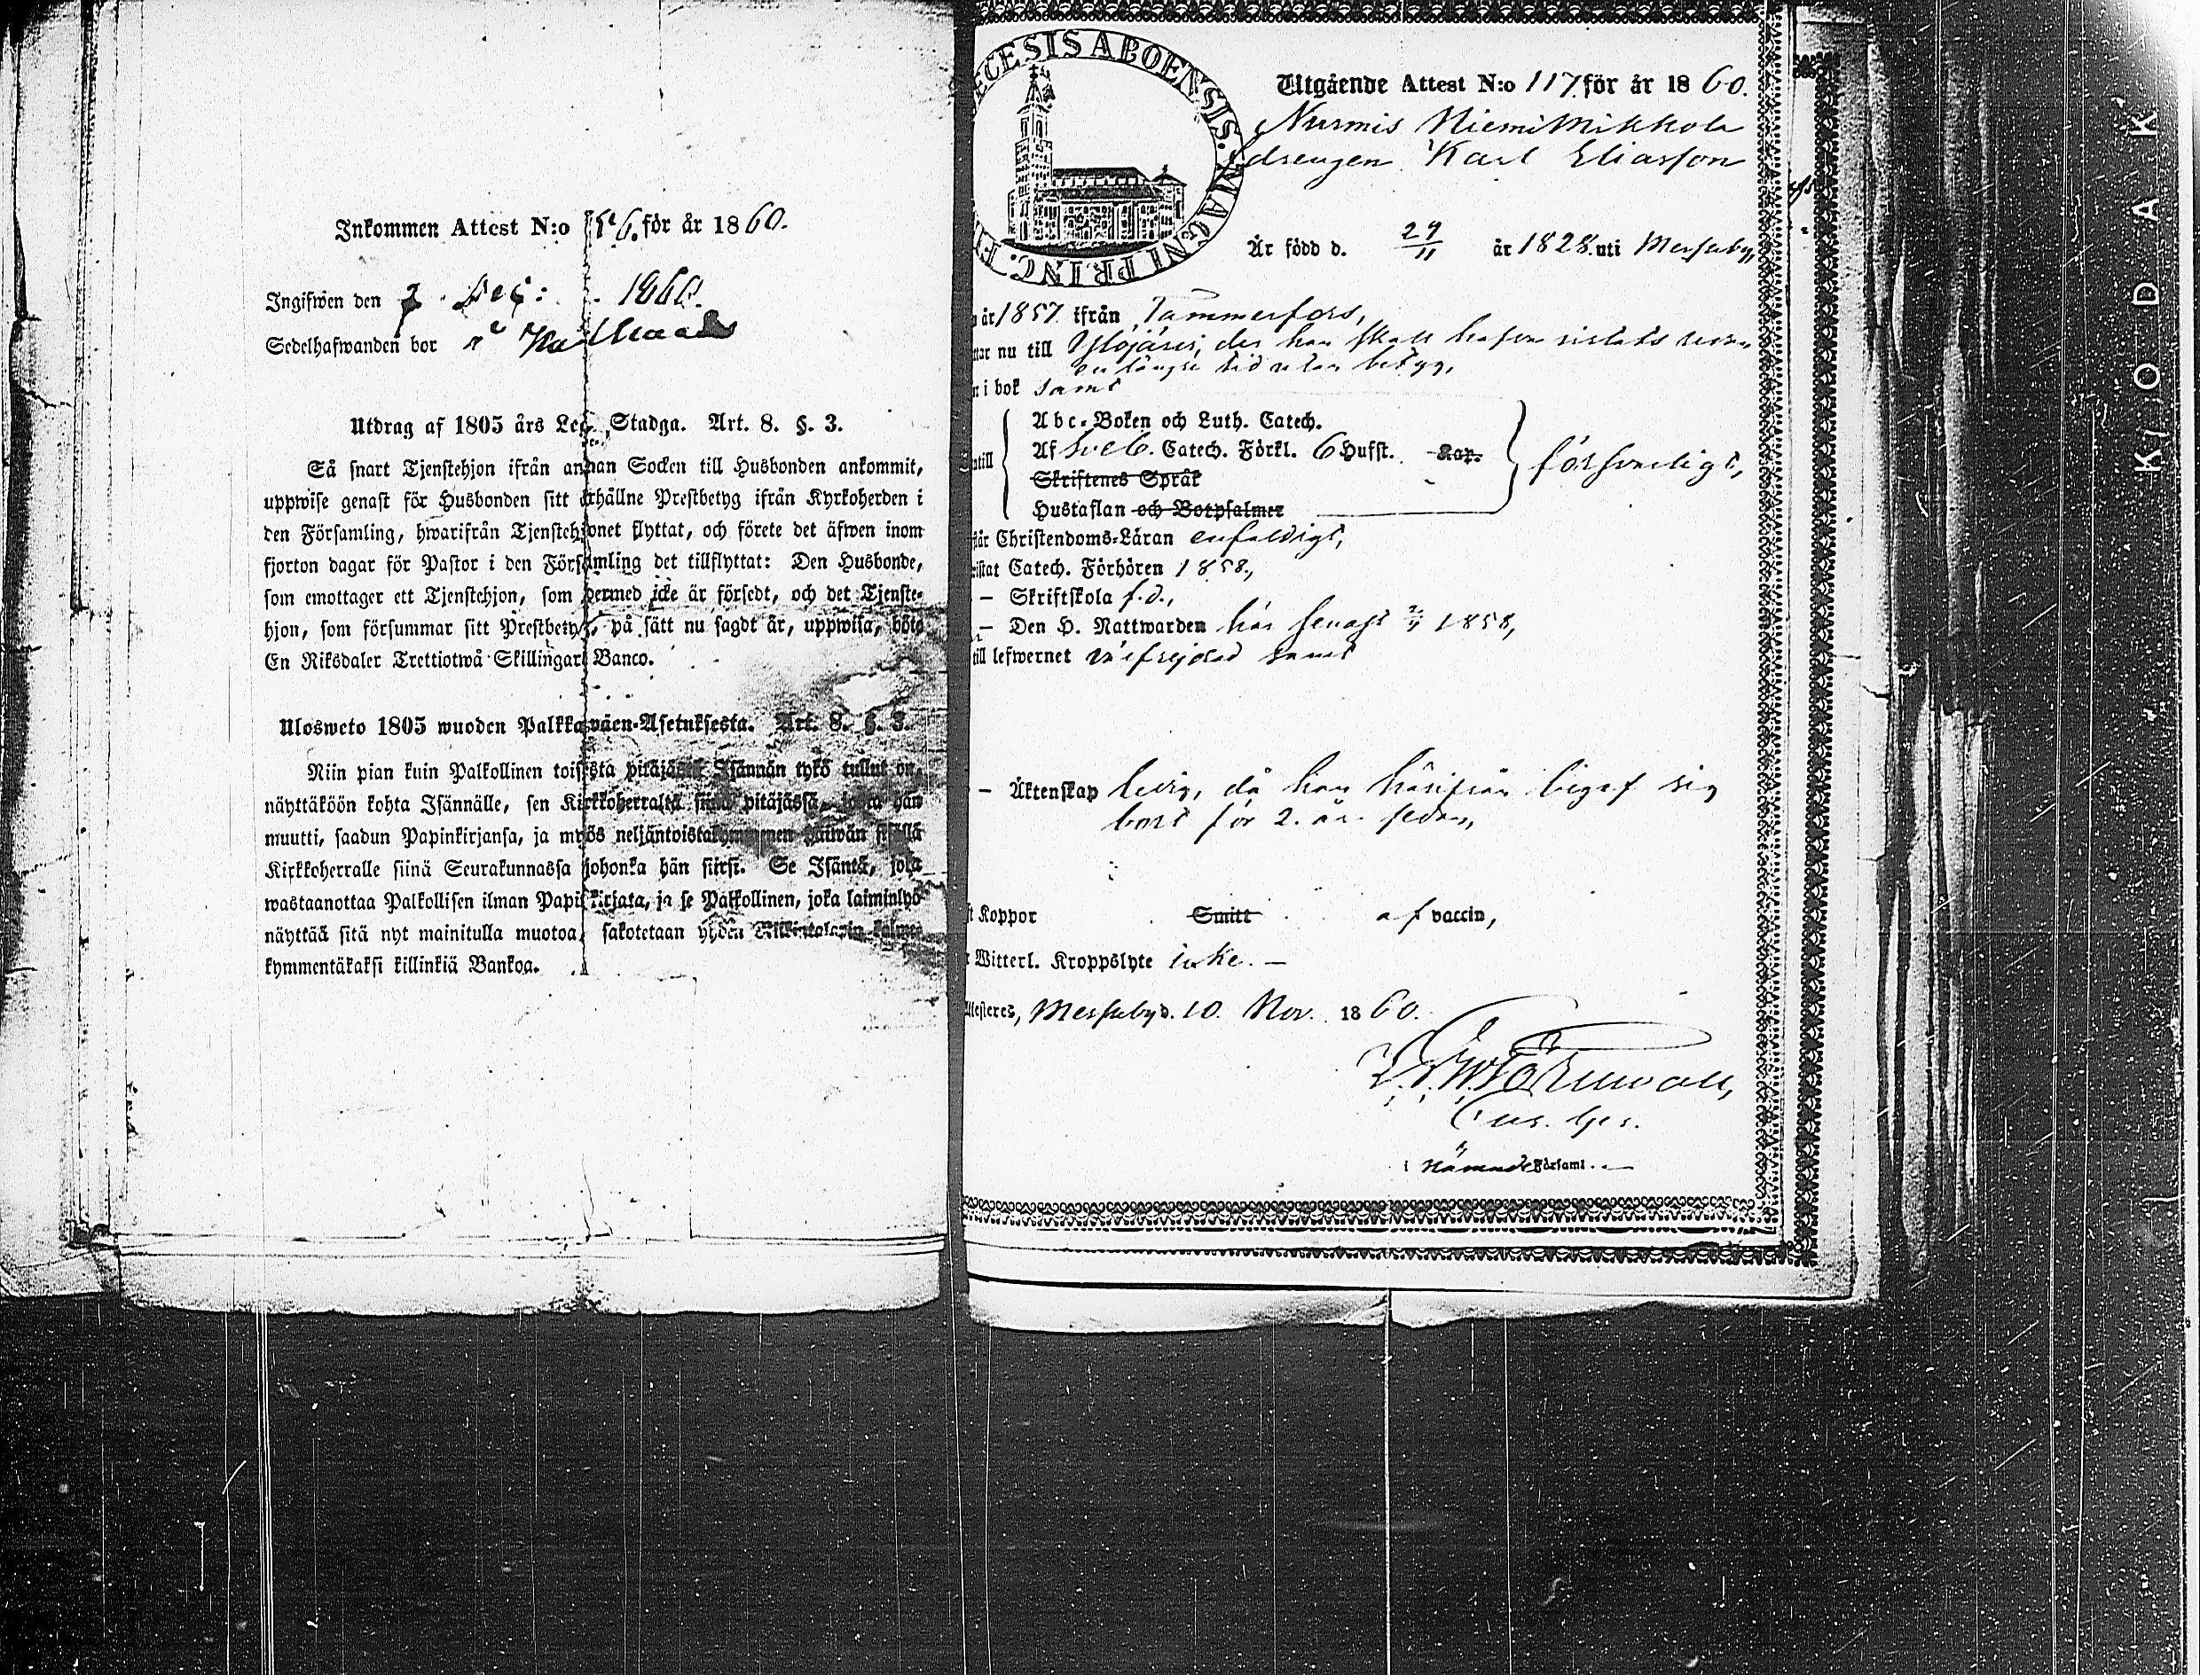 Inkommen Attest N:o 56. för år 1860.
Ingifwen den 2 Dec: 1860.
Sedelhafwanden bor
Utdrag af 1805 års Leg. Stadga. Art. 8. §. 3.
Så snart Tjenstehjon ifrån annan Socken till Husbonden ankommit,
uppwise genast för Husbonden sitt erhållne Prestbetyg ifrån Kyrkoherden i
den Församling, hwarifrån Tjenstehjonet flyttat, och förete det äfwen inom
fjorton dagar för Pastor i den Församling det tillflyttat: Den Husbonde,
som emottager ett Tjenstehjon, som dermed icke är försedt, och det Tjenste-
hjon, som försummar sitt Prestbetyg, på sätt nu sagdt är, uppwisa, böte
En Riksdaler Trettiotwå Skillingar Banco.
Ulosweto 1805 wuoden Palkkawäen-Asetuksesta. Art. 8. §. 3.
Niin pian kuin Palkollinen toisesta pitäjästä Isännän tykö tullut on,
näyttäköön kohta Isännälle, sen Kirkkoherralta siinä pitäjässä, josta hän
muutti, saadun Papinkirjansa, ja myös neljäntoistakymmenen päiwän sisällä
Kirkkoherralle siinä Seurakunnassa johonka hän siirsi. Se Isäntä, joka
wastaanottaa Palkollisen ilman Papinkirjata, ja se Palkollinen, joka laiminlyö
näyttää sitä nyt mainitulla muotoa, sakotetaan yhden Riikintalarin kolme-
kymmentäkaksi killinkiä Bankoa.
ECESIS ABOENSIS. MAGNI PRINC. F
Utgående Attest N:o 117. för år 1860.
Nurmis Niemi Mikkola
drengen Karl Eliasson
Är född d. 29/11 år 1828. uti Messuby,
år 1857 ifrån Tammerfors,
nu till Ylöjärvi, der han skall hafva vistats
en längre tid utan betyg,
i bok samt
Abc-Boken och Luth. Catech.
Af Sveb. Catech. Förkl. 6 Hufst. Kap.
Skriftenes Språk
försvarligt,
Hustaflan och Botpsalmer
Christendoms-Läran enfaldigt,
Catech. Förhören 1858.,
— Skriftskola f.d.,
— Den H. Nattwarden här senast 1858,
till lefwernet oanfrejdad samt
— Äktenskap ledig, då han härifrån begaf sig
bort för 2. år sedan,
Koppor Smitt af vaccin,
Witterl. Kroppslyte icke. —
Attesteres, Messuby d. 10. Nov. 1860.
i Nämnde Församl. —
KODAK